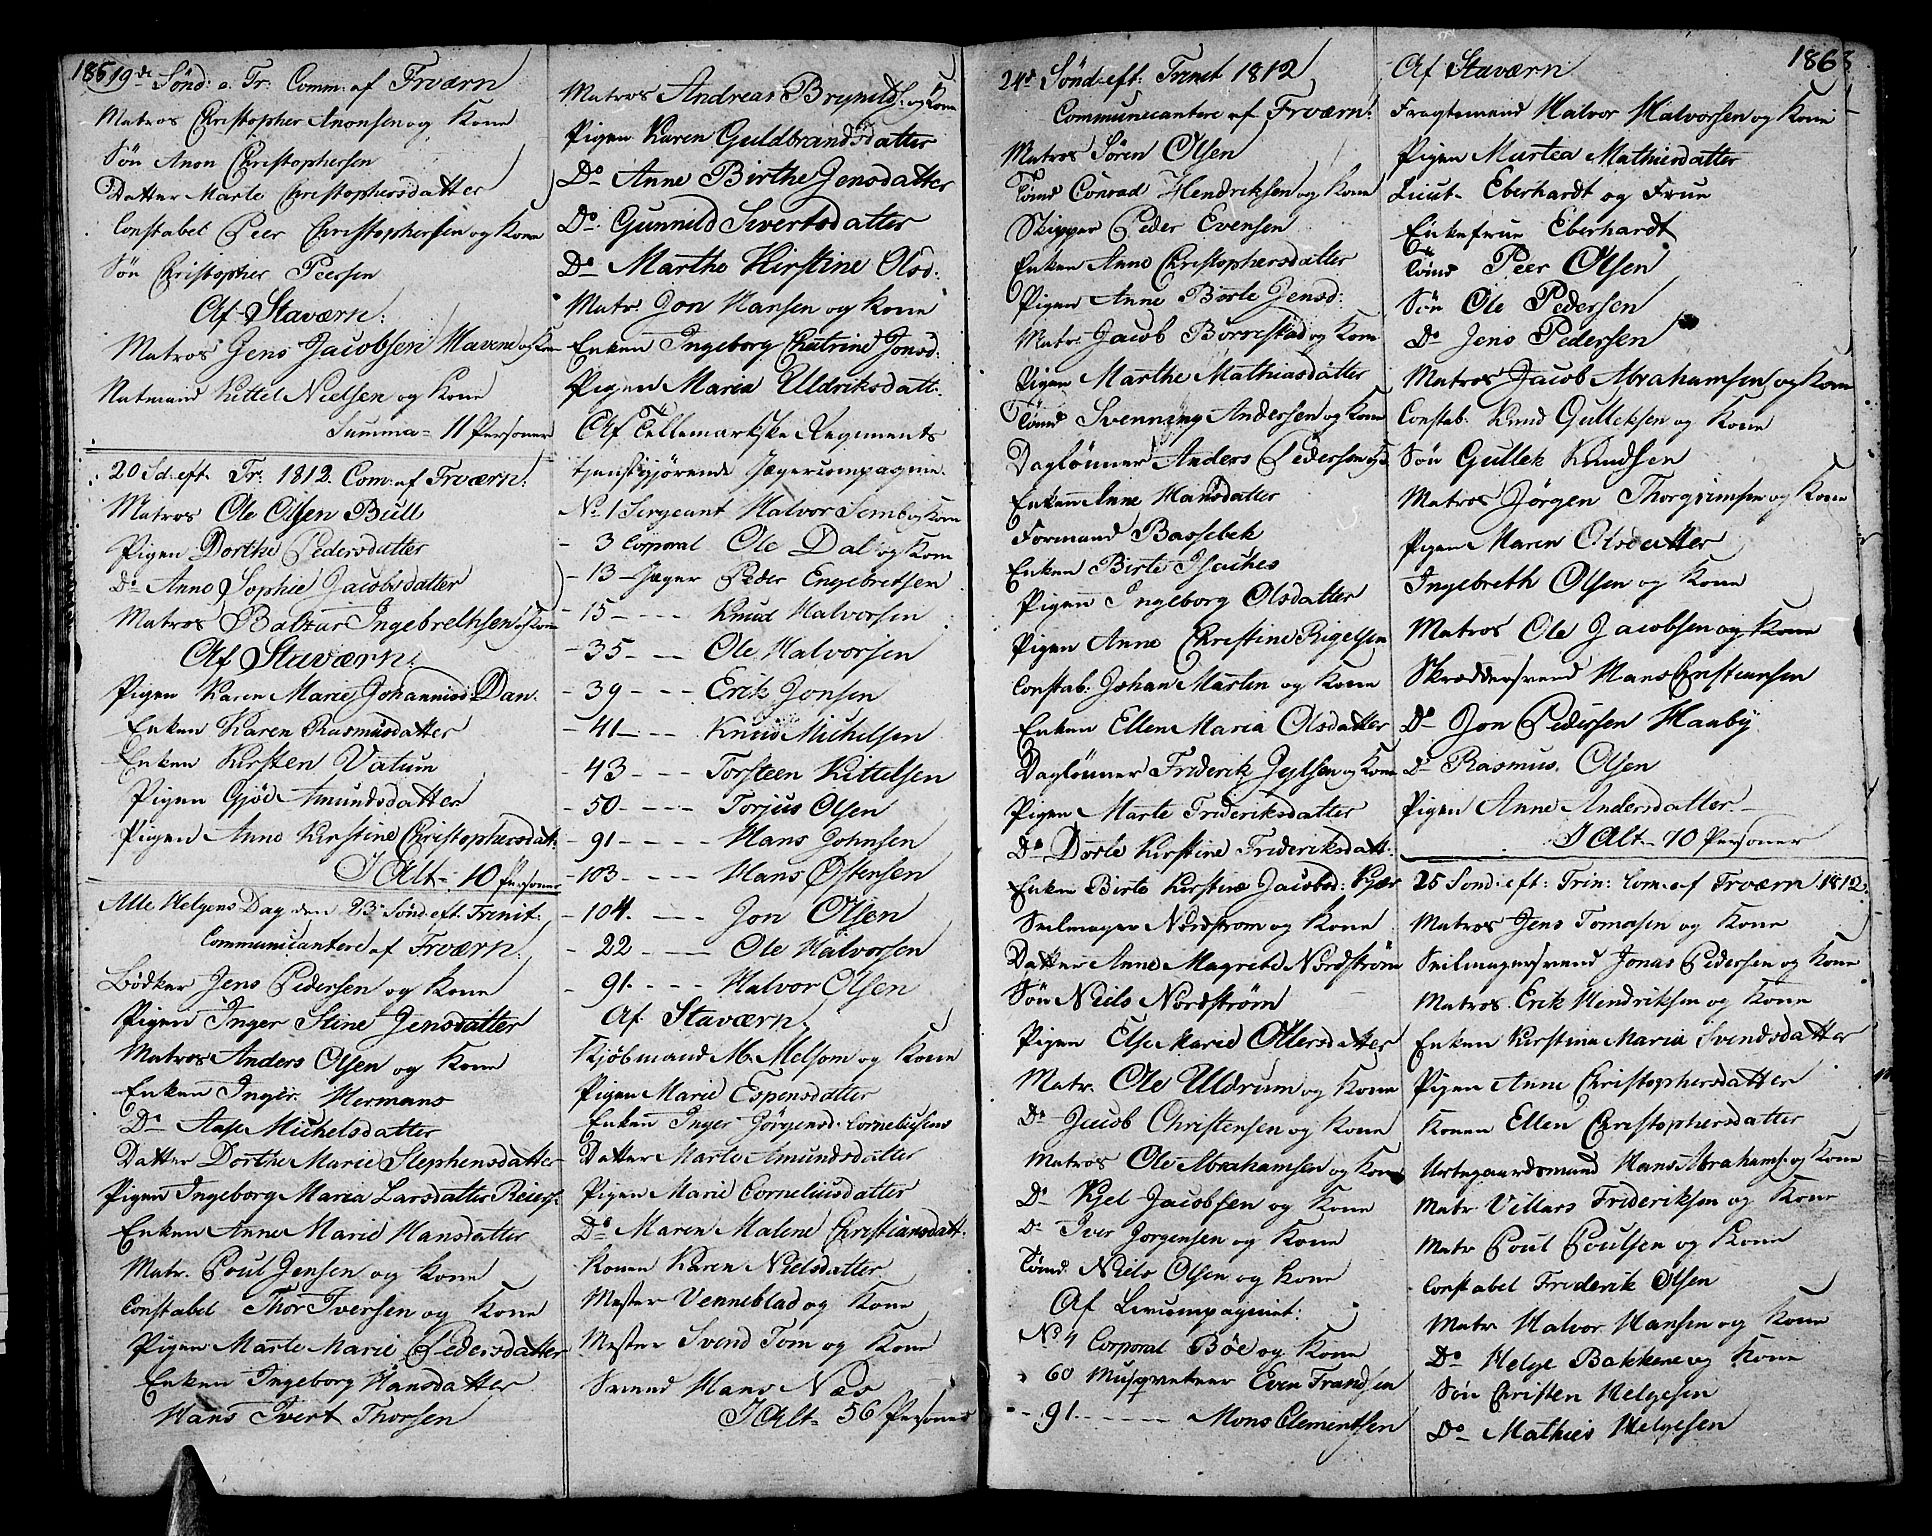 185
19de Sønd: e. Tr: Comm: af Frværn
Matros Christopher Anonsen og Kone
Søn Anon Christophersen
Datter Marte Christophersdatter
Constabel Peer Christophersen og Kone
Søn Christopher Peersen
Af Staværn:
Matros Jens Jacobsen Mavene og Kone
Natmand Kittel Nielsen og Kone
Summa = 11 Personer
20 Sd: eft. Tr: 1812. Com: af Frværn:
Matros Ole Olsen Bull
Pigen Dorthe Pedersdatter
Do Anne Sophie Jacobsdatter
Matros Baltzar Ingebrethsen og Kone
Af Staværn:
Pigen Karen Marie Johannisd: Dan.
Enken Karen Rasmusdatter
Enken Kirsten Vatum
Pigen Gjøe Amundsdatter
Pigen Anne Kirstine Christophersdatt:
I Alt = 10 Personer
Alle Helgens Dag den 23de Sønd: eft. Trinit:
Communicantere af Frværn:
Bødker Jens Pedersen og Kone
Pigen Inger Stine Jensdatter
Matros Anders Olsen og Kone
Enken Inger Hermans
Do Aase Michelsdatter
Datter Dorthe Marie Stephensdatter
Pigen Ingeborg Maria Larsdatter Reiers:
Enken Anne Marie Hansdatter
Matr. Poul Jensen og Kone
Constabel Thor Iversen og Kone
Pigen Marte Marie Pedersdatter
Enken Ingeborg Hansdatter
Hans Ivert Thorsen
Matros Andreas Brynilds: og Kone
Pigen Karen Guldbrandsdatter
Do Anne Birthe Jensdatter
Do Gunnild Sivertsdatter
Do Marthe Kirstine Olsd:
Matr. Jon Hansen og Kone
Enken Ingeborg Chatrine Jonsd:
Pigen Maria Uldriksdatt:
Af Tellemarkske Regiments
tjenstgjørende Jægercompagnie.
No 1 Sergeant Halvor Semb og Kone
- 3 Corporal Ole Dal og Kone
- 13 - Jæger Peder Engebretsen
- 15 - - - Knud Halvorsen
- 35 - - - Ole Halvorsen
- 39 - - - Erik Jonsen
- 41 - - - Knud Michelsen
- 43 - - - Torsteen Kittelsen
- 50 - - - Torjus Olsen
- 91 - - - Hans Johnsen
- 103 - - - Hans Østensen
- 104. - - - Jon Olsen
- 22 - - - Ole Halvorsen
- 91 - - - Halvor Olsen
Af Staværn.
Kjøbmand M. Melsom og Kone
Pigen Marie Espensdatter
Enken Inger Jørgensd: Corneliusens
Datter Marte Amundsdatter
Pigen Marie Corneliusdatter
Do Maren Malene Christiansdatt:
Konen Karen Nielsdatter
Mester Venneblad og Kone
Mester Svend Tom og Kone
Svend Hans Næs
I Alt = 56 Personer
24de Sønd: eft: Trinit 1812
Communicantere af Frværn:
Matros Søren Olsen
Tømd Conrad Hendriksen og Kone
Skipper Peder Evensen
Enken Anne Christophersdatter
Pigen Anne Borte Jensd:
Matr. Jacob Borrestad og Kone
Pigen Marthe Mathiasdatter
Tømd Svenning Andersen og Kone
Daglønner Anders Pedersen
Enken Anne Hansdatter
Formand Bassebek
Enken Birte Isaches
Pigen Ingeborg Olsdatter
Pigen Anne Christine Rigelsen
Constab: Johan Martin og Kone
Enken Ellen Maria Olsdatter
Daglønner Friderik Jylsen og Kone
Pigen Marte Frideriksdatter
Do Dorte Kirstine Frideriksdatt:
Enken Birte Kirstine Jacobsd: Kjær
Seilmager Nordstrøm og Kone
Datter Anne Magrete Nordstrøm
Søn Niels Nordstrøm
Pigen Else Marie Ollersdatter
Matr. Ole Uldrum og Kone
Do Jacob Christensen og Kone
Matros Ole Abrahamsen og Kone
Do Kjel Jacobsen og Kone
Do Iver Jørgensen og Kone
Tømd. Niels Olsen og Kone
Af Livcompagniet:
No 4 Corporal Bøe og Kone
60 Musqveteer Even Frandsen
- 91 - - - - - Mons Clementsen
186
Af Staværn
Fragtemand Halvor Halvorsen og Kone
Pigen Martea Mathisdatter
Lieut- Eberhardt og Frue
Enkefrue Eberhardt
Tømd Peer Olsen
Søn Ole Pedersen
Do Jens Pedersen
Matros Jacob Abrahamsen og Kone
Constab. Knud Gulleksen og Kone
Søn Gullek Knudsen
Matros Jørgen Thorgrimsen og Kone
Pigen Maren Olsdatter
Ingebreth Olsen og Kone
Matros Ole Jacobsen og Kone
Skræddersvend Hans Cristiansen
Do Jon Pedersen Haaby
Do Rasmus Olsen
Pigen Anne Andersdatter
I Alt - 70 Personer
25 Sønd: eft: Trin: Com: af Frværn 1812.
Matros Jens Tomasen og Kone
Seilmagersvend Jonas Pedersen og Kone
Matros Erik Hendriksen og Kone
Enken Kirstine Maria Svendsdatter
Pigen Anne Christophersdatter
Konen Ellen Christophersdatter
Urtegaardsmand Hans Abrahams: og Kone
Matr Villars Frideriksen og Kone
Matr Poul Poulsen og Kone
Constabel Friderik Olsen
Matr Halvor Hansen og Kone
Do Helge Bakkene og Kone
Søn Christen Helgesen
Do Mathies Helgesen